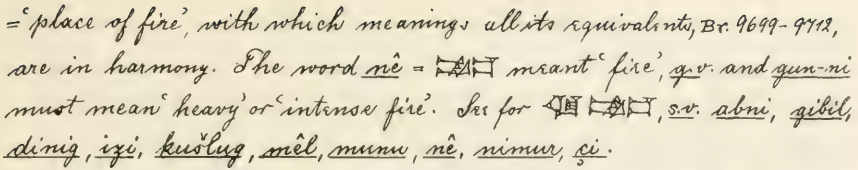 =‘place of fire’, with which meanings all its equivalents, Br. 9699-9712,
are in harmony. The word nê = meant ‘fire’, q.v. and gun-ni
must mean ‘heavy’ or ‘intense fire’. See for , s.v. abni, gibil,
dinig, izi, kušlug, mêl, munu, nê, nimur, çi.